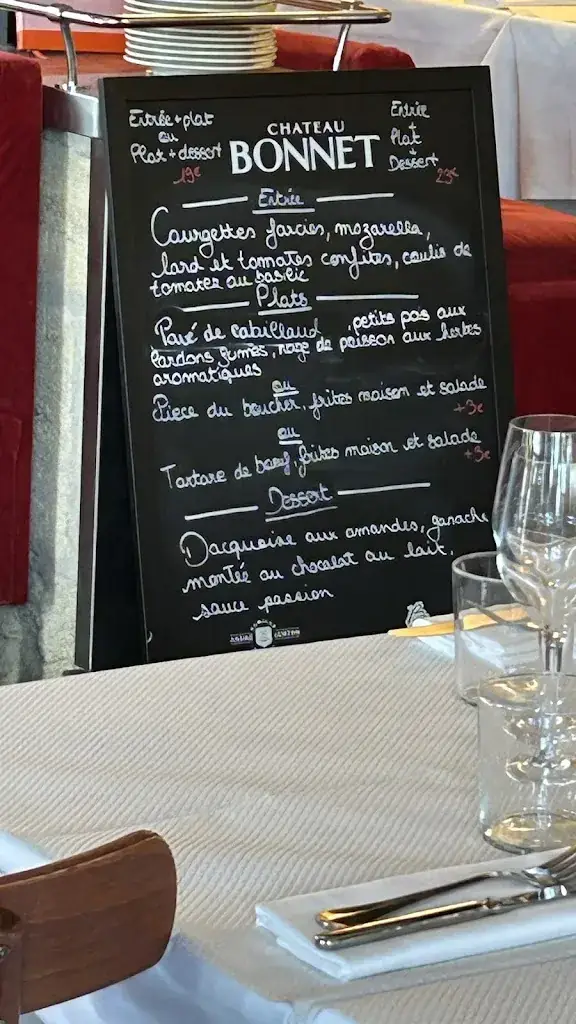 Entrée + plat
ou
Plat + dessert
19€
CHATEAU
BONNET
Entrée
+
Plat
+
Dessert
23€
Entrée
Courgettes farcies, mozarella,
lard et tomates confites, coulis de
tomates au basilic
Plats
Pavé de cabillaud, petits pois aux
lardons fumés, nage de poisson aux herbes
aromatiques
ou
Pièce du boucher, frites maison et salade
+3€
ou
Tartare de bœuf, frites maison et salade
+3€
Dessert
Dacquoise aux amandes, ganache
montée au chocolat au lait,
sauce passion